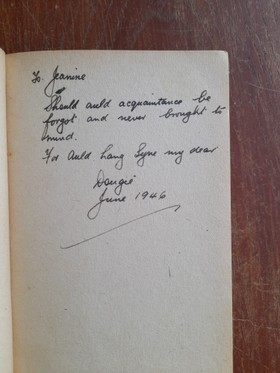 To Jeanine
Should auld acquaintance be
forgot and never brought to
mind.
For Auld Lang Syne my dear
Dougie
June 1946